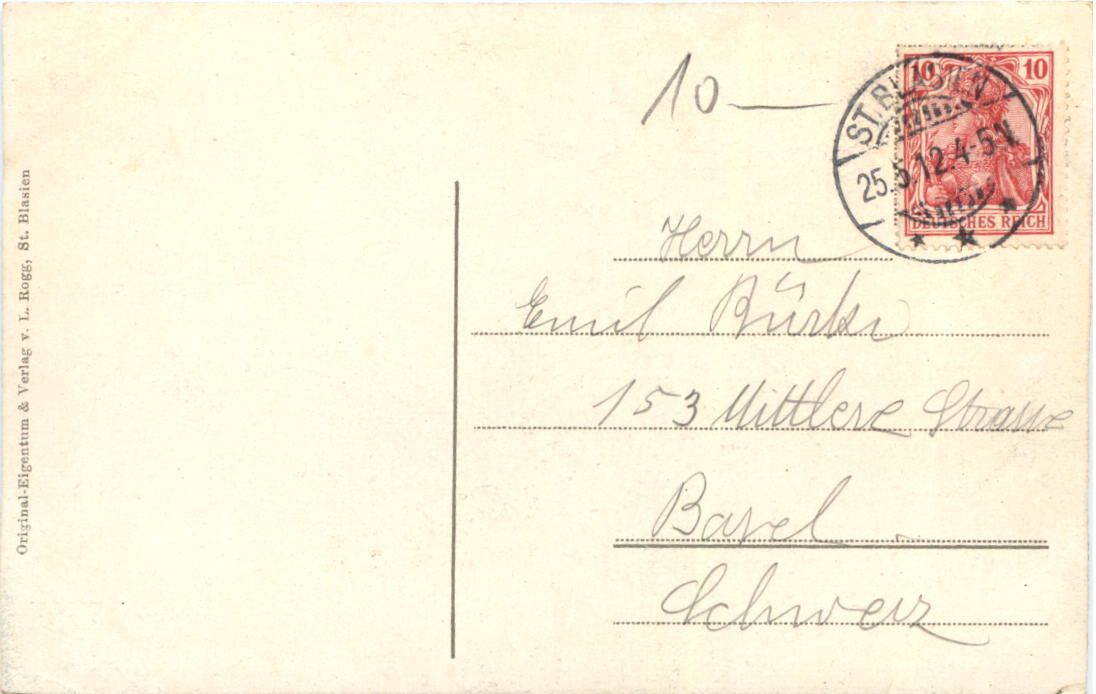 10 —
10 10
ST. BLASIEN
25.5.12.4-5N.
DEUTSCHES REICH
Herrn
Emil Bürki
153 Mittlere Strasse
Basel
Schweiz
Original-Eigentum & Verlag v. L. Rogg, St. Blasien